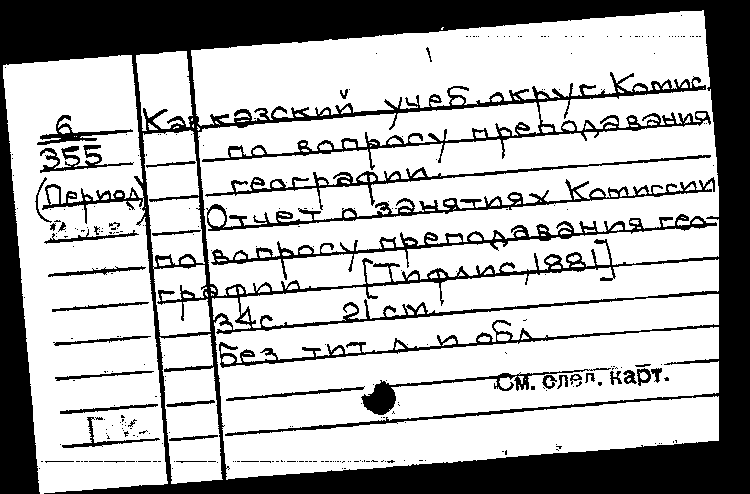 Кавказский учеб. округ. Комис.
по вопросу преподавания
географии.
Отчет о занятиях Комиссии
по вопросу преподавания гео-
графии. [Тифлис, 1881].
34с. 21 см.
Без тит. л. и обл.
См. след. карт.
6
355
(Период)
Г.К.